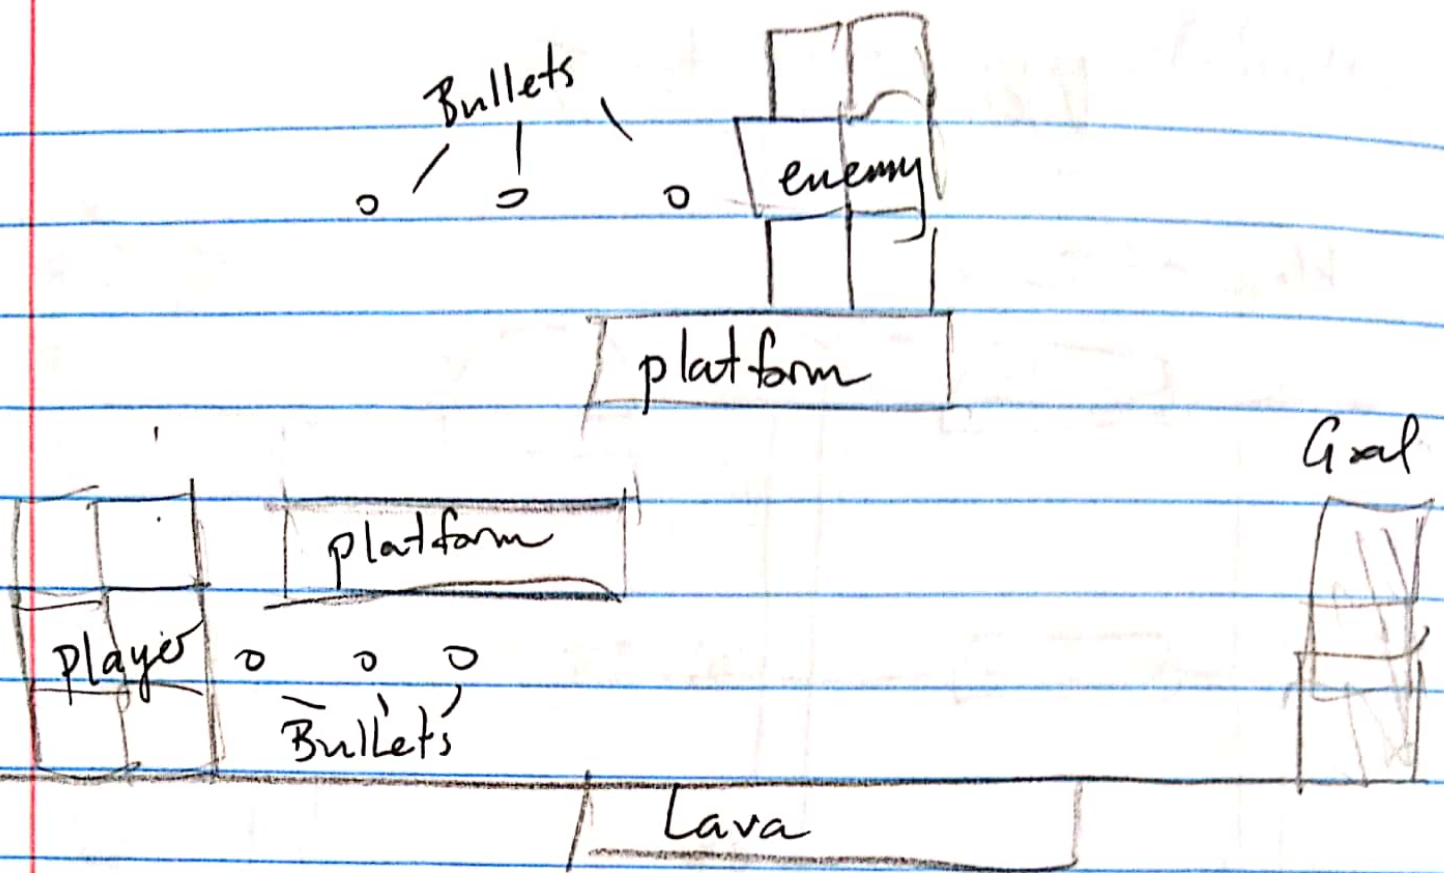 Bullets
enemy
platform
Goal
platform
player
Bullets
Lava